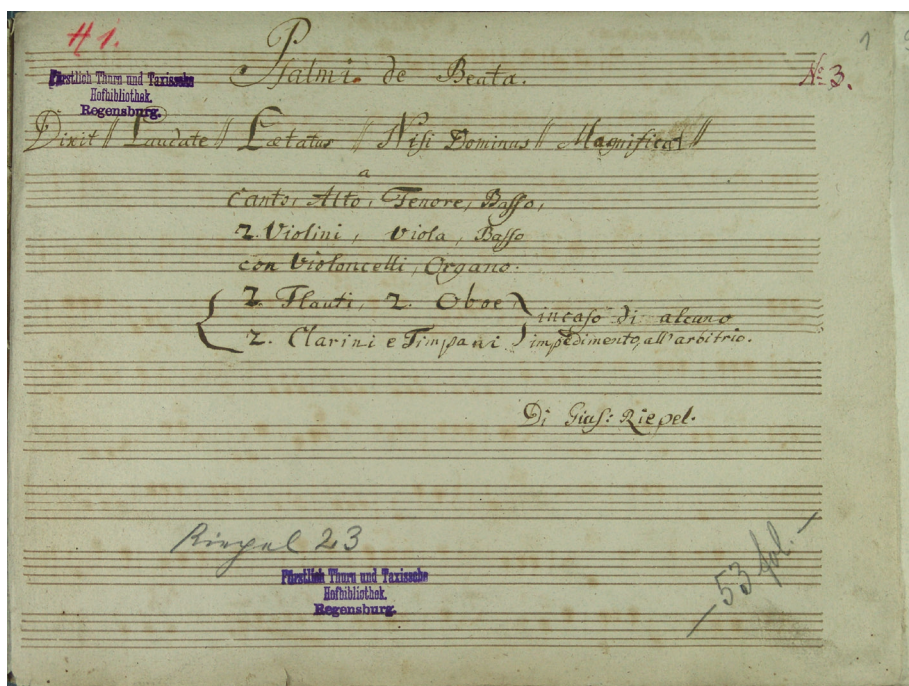 H 1.
Psalmi de Beata.
1
No: 3.
Fürstlich Thurn und Taxissche
Hofbibliothek.
Regensburg.
Dixit // Laudate // Lætatus // Nisi Dominus // Magnificat //
a
Canto, Alto, Tenore, Basso,
2. Violini, Viola, Basso
con Violoncelli, Organo.
2. Flauti, 2. Oboe
2. Clarini e Timpani
incaso di alcuno
impedimento, all' arbitrio.
Di Gius: Riepel.
Riepel 23
Fürstlich Thurn und Taxissche
Hofbibliothek.
Regensburg.
– 53 fol. –